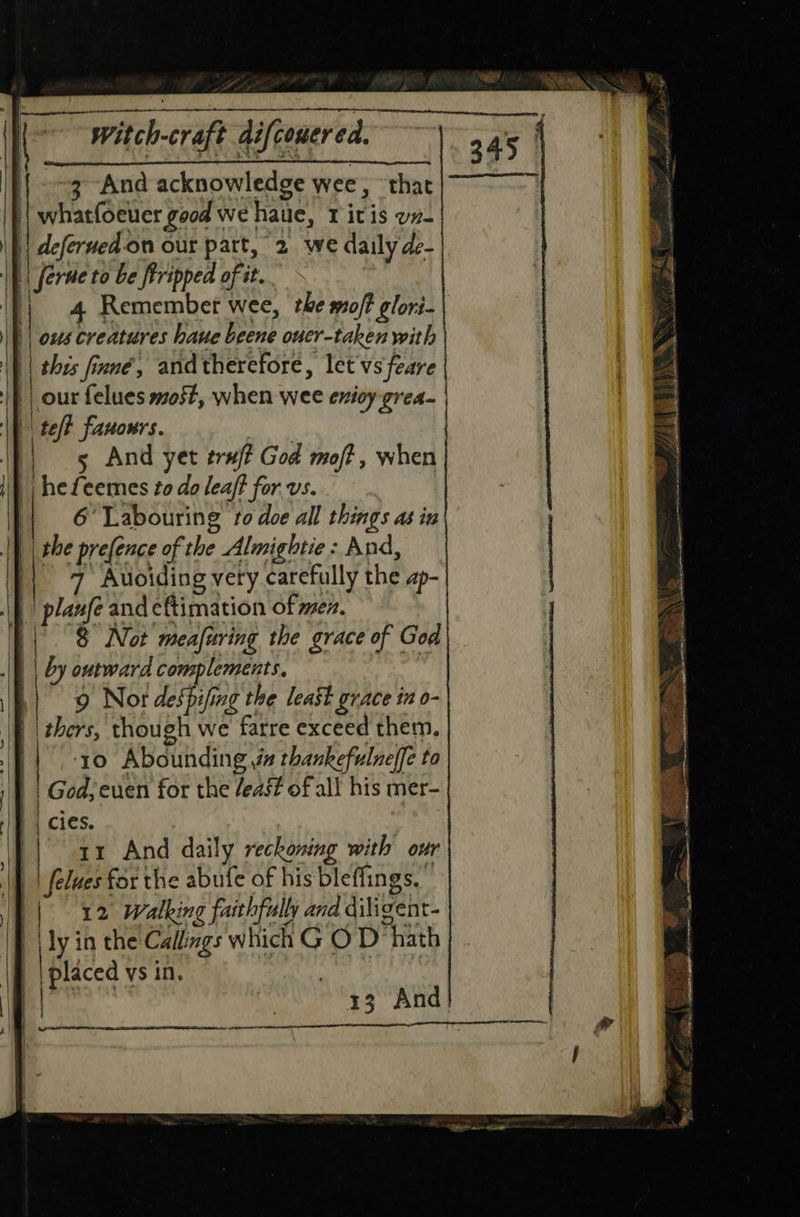 Witch-craft diſcouered.
345
3 And acknowledge wee, that
whatſoeuer good we haue, 1 it is vn-
deſerued on our part, 2 we daily de-
ſerue to be ſtripped of it.
4 Remember wee, the moſt glori-
ous creatures haue beene ouer-taken with
this ſinne, and therefore, let vs feare
our ſelues moſt, when wee enioy grea-
teſt fauours.
5 And yet truſt God moſt, when
he ſeemes to do leaſt for vs.
6 Labouring to doe all things as in
the preſence of the Almightie: And,
7 Auoiding very carefully the ap-
plauſe and eſtimation of men.
8 Not meaſuring the grace of God
by outward complements.
9 Nor deſpiſing the leaſt grace in o-
thers, though we farre exceed them.
10 Abounding in thankefulneſſe to
God, euen for the leaſt of all his mer-
cies.
11 And daily reckoning with our
ſelues for the abuſe of his bleſſings.
12 Walking faithfully and diligent-
ly in the Callings which GOD hath
placed vs in.
13 And